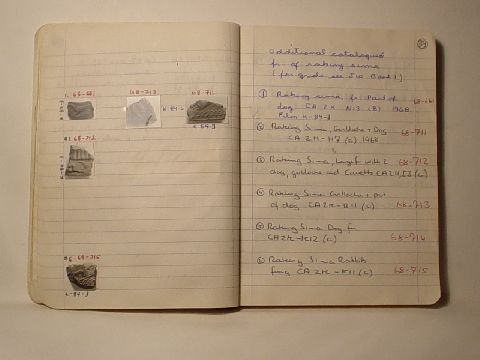 1. 68-661
68-713
68-711
K-84-3
68-712
6 68-715
K-84-3
Additional catalogued
fr. of raking sima
(for grade see Inv Book 1)
① Raking sima, fr. Part of
dog CA 2K (B) 1968
Film K-84-3
② Raking Sima, Guilloche + Dog
68-711
CA 2K - H7 (C) 1968
③ Raking Sima, large fr with 2
68-712
dog, guilloche and Cavetto CA
④ Raking Sima Guilloche + part
of dog CA 2K - K11 (C)
68-713
⑤ Raking Sima Dog fr
CA 2K - K12 (C)
68-714
⑥ Raking Sima Rabbits
frag CA 2K - K11 (C)
68-715